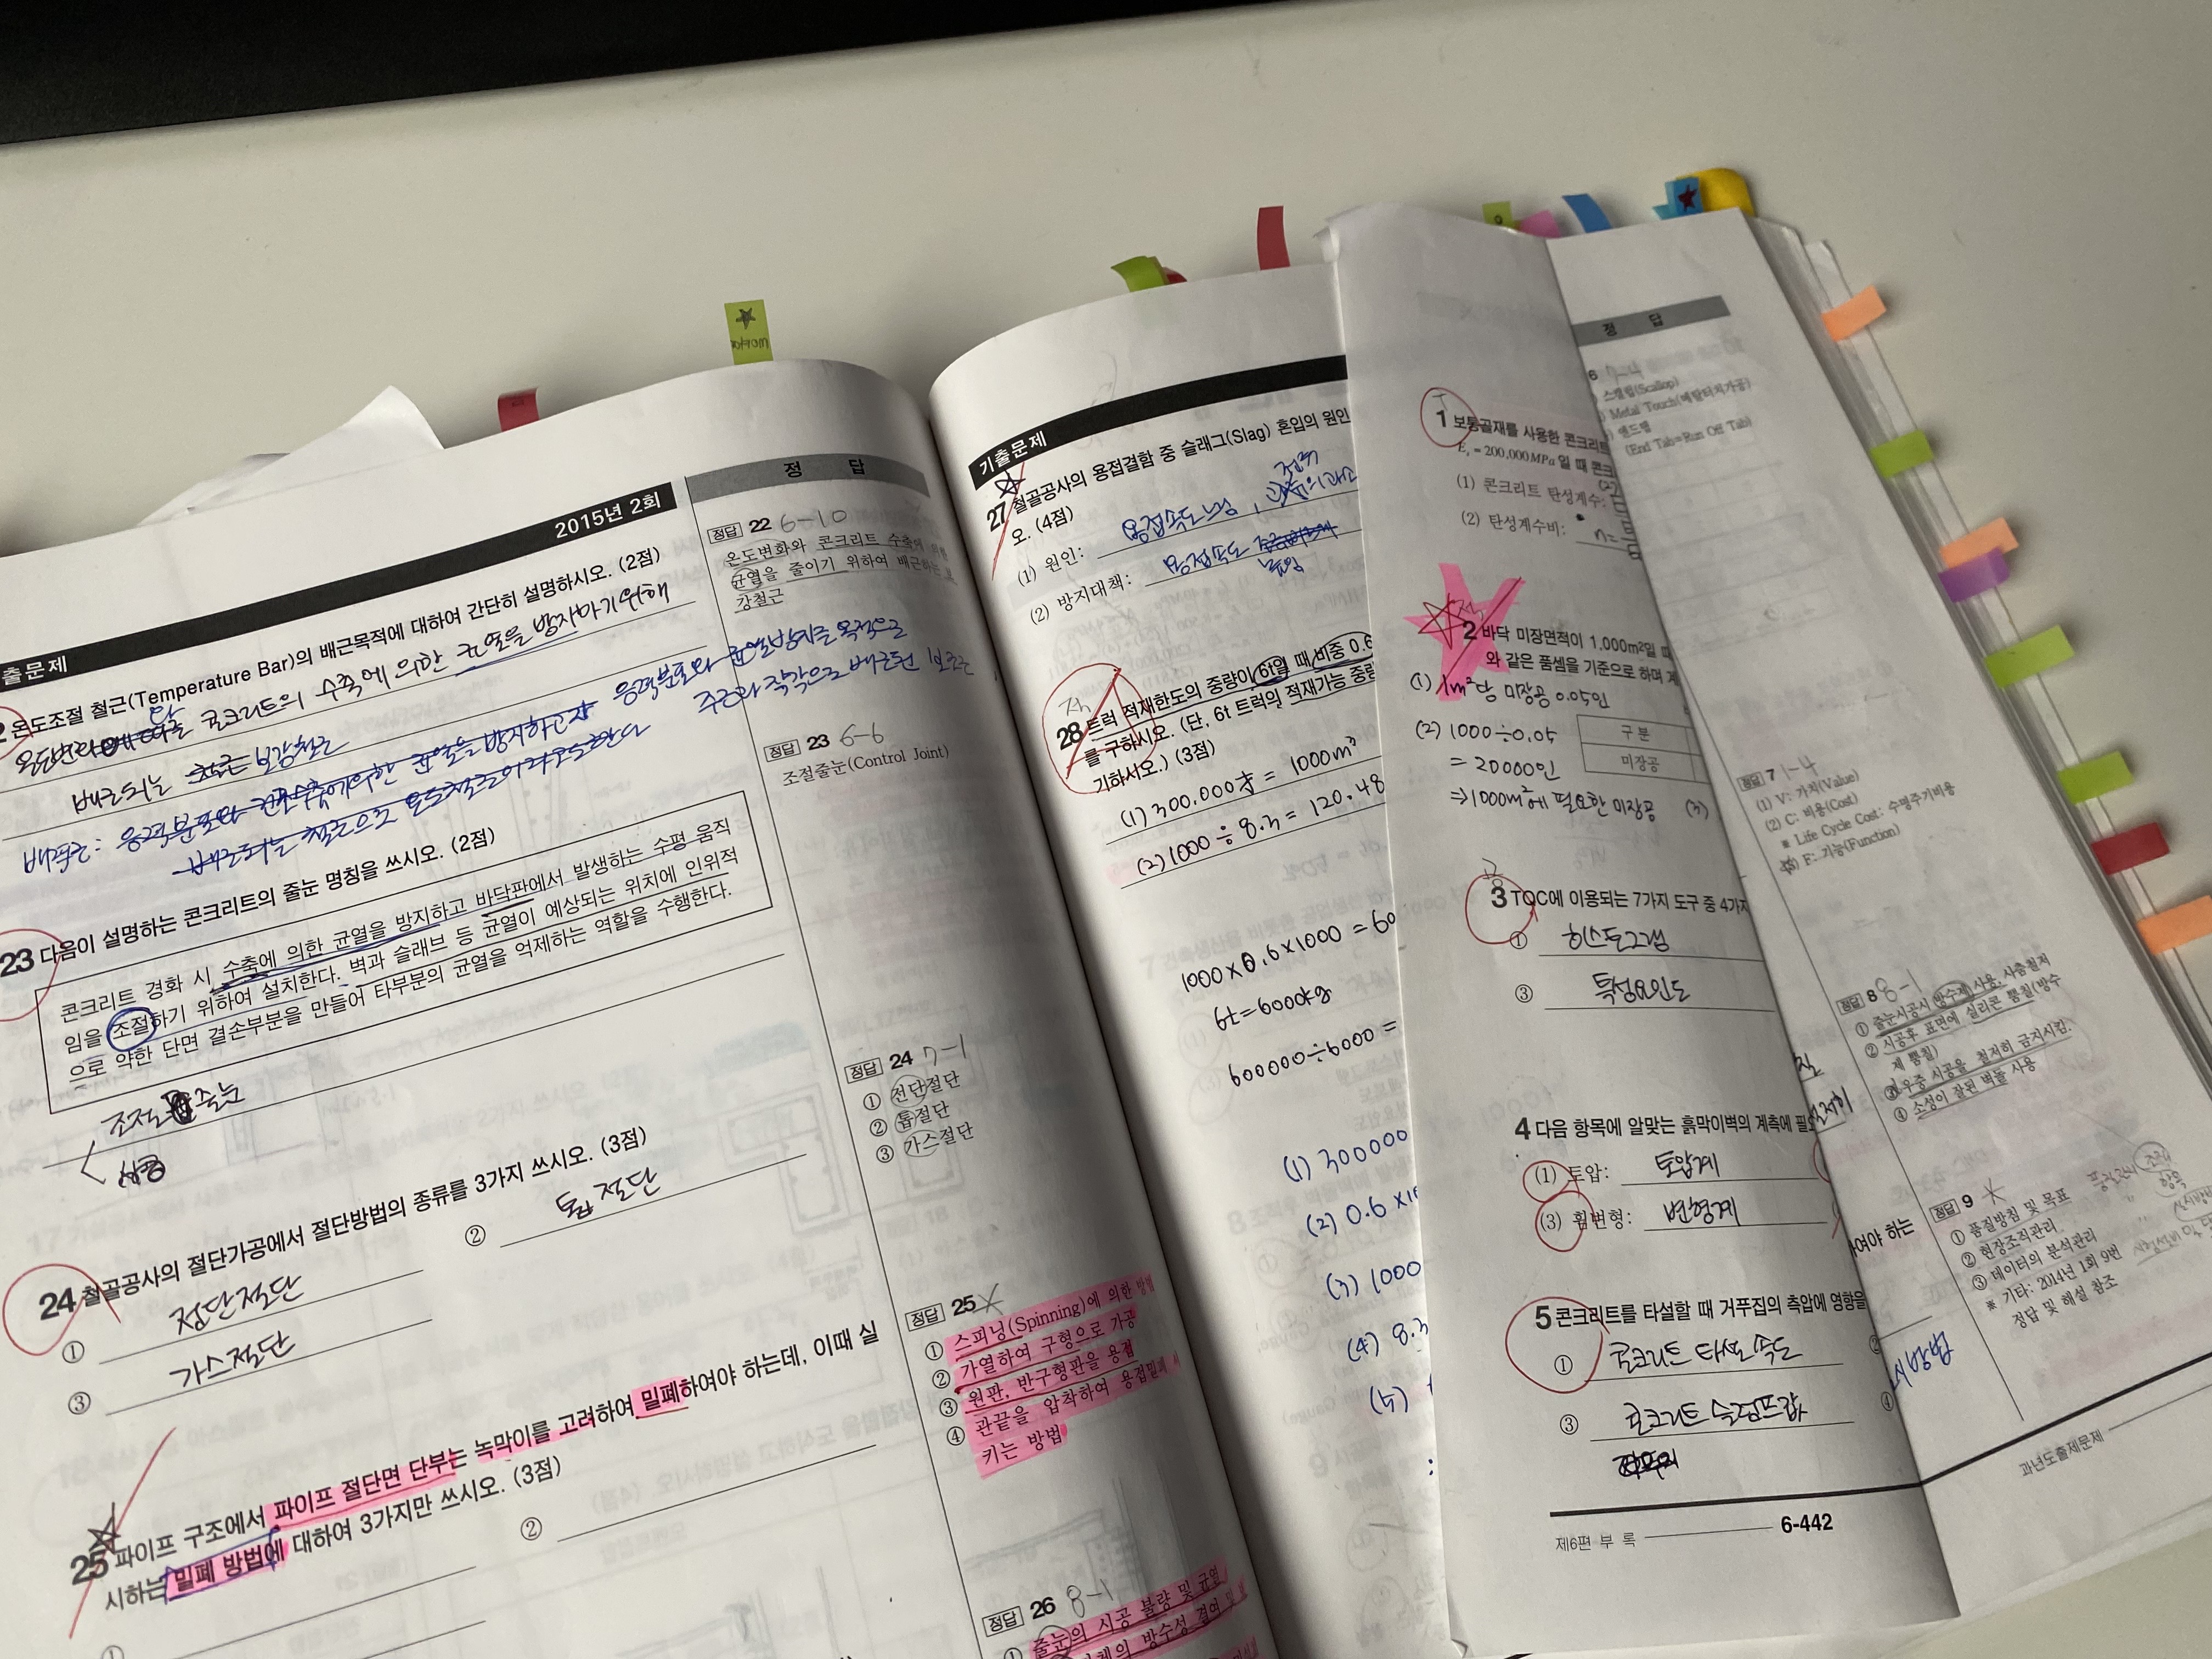 출문제
2015년 2회
온도조절 철근(Temperature Bar)의 배근목적에 대하여 간단히 설명하시오. (2점)
콘크리트의 수축에 의한 균열을 방지하기위해
배근되는 철근 보강철근
응력분포와 균열방지를 목적으로
주근과 직각으로 배근된 보조근
배력근: 응력분포와
23 다음이 설명하는 콘크리트의 줄눈 명칭을 쓰시오. (2점)
콘크리트 경화 시 수축에 의한 균열을 방지하고 바닥판에서 발생하는 수평 움직
임을 조절하기 위하여 설치한다. 벽과 슬래브 등 균열이 예상되는 위치에 인위적
으로 약한 단면 결손부분을 만들어 타부분의 균열을 억제하는 역할을 수행한다.
조절 줄눈
시공
24 철골공사의 절단가공에서 절단방법의 종류를 3가지 쓰시오. (3점)
① 전단절단
② 톱 절단
③ 가스절단
25 파이프 구조에서 파이프 절단면 단부는 녹막이를 고려하여 밀폐하여야 하는데, 이때 실
시하는 밀폐 방법에 대하여 3가지만 쓰시오. (3점)
②
정 답
정답 22 6-10
온도변화와 콘크리트 수축에
균열을 줄이기 위하여 배근하는
강철근
정답 23 6-6
조절줄눈(Control Joint)
정답 24 7-1
① 전단절단
② 톱절단
③ 가스절단
정답 25
① 스피닝(Spinning)에 의한 방법
② 가열하여 구형으로 가공
③ 원판, 반구형판을 용접
④ 관끝을 압착하여 용접밀폐
키는 방법
정답 26 8-1
줄눈의 시공 불량 및 균열
방수성 결여 및
기출문제
27 철골공사의 용접결함 중 슬래그(Slag) 혼입의 원인
오. (4점)
(1) 원인: 용접속도
(2) 방지대책: 용접속도
28 트럭 적재한도의 중량이 6t일 때 비중 0.6
를 구하시오. (단, 6t 트럭의 적재가능 중량
기하시오.) (3점)
(1) 300.000才 = 1000m³
(2) 1000 ÷ 8.3 = 120.48
1000×0.6×1000 = 60
6t=6000kg
600000÷6000 =
(1) 300000
(2) 0.6 ×10
(3) 1000
(4) 8.3
(5)
1 보통골재를 사용한 콘크리트
Es = 200,000MPa일 때 콘크
(1) 콘크리트 탄성계수:
(2) 탄성계수비: n=
2 바닥 미장면적이 1,000m²일 때
와 같은 품셈을 기준으로 하며 계
(1) 1m²당 미장공 0.05인
(2) 1000÷0.05
= 20000인
⇒1000m²에 필요한 미장공 (3)
구분
미장공
3 TQC에 이용되는 7가지 도구 중 4가지
① 히스토그램
③ 특성요인도
4 다음 항목에 알맞는 흙막이벽의 계측에 필요
(1) 토압: 토압계
(3) 휨변형: 변형계
5 콘크리트를 타설할 때 거푸집의 측압에 영향을
① 콘크리트 타설 속도
③ 콘크리트 슬럼프값
제6편 부 록
6-442
정 답
6 7-4
스캘럽(Scallop)
Metal Touch(메탈터치가공)
엔드탭
(End Tab=Run Off Tab)
정답 7 1-4
(1) V: 가치(Value)
(2) C: 비용(Cost)
※ Life Cycle Cost: 수명주기비용
(3) F: 기능(Function)
정답 8 8-1
① 줄눈시공시 방수제 사용, 사춤철저
② 시공후 표면에 실리콘 뿜칠(방수
제 뿜칠)
③ 우중 시공을 철저히 금지시킴.
④ 소성이 잘된 벽돌 사용
정답 9
① 품질방침 및 목표
② 현장조직관리
③ 데이터의 분석관리
※ 기타: 2014년 1회 9번
정답 및 해설 참조
여야 하는
시방법
과년도출제문제